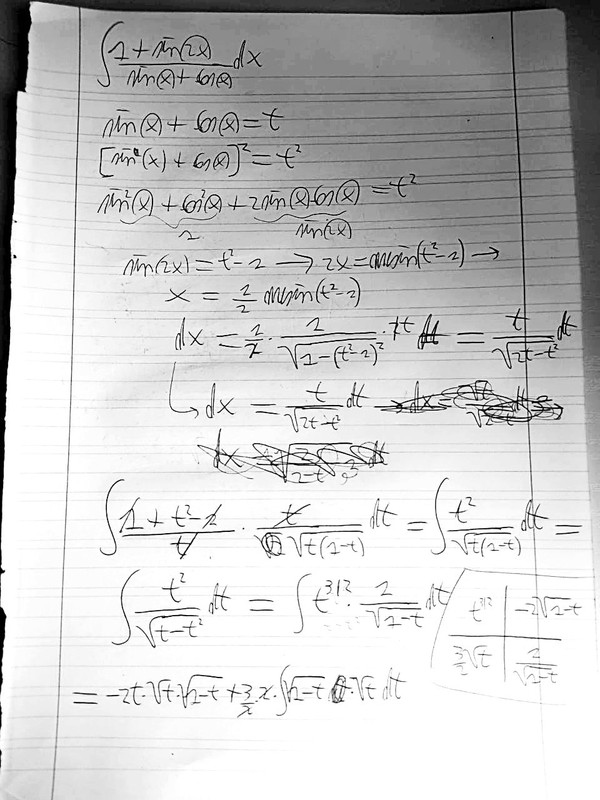 ∫ (1 + sin(2x))/(sin(x) + cos(x)) dx
sin(x) + cos(x) = t
[sin(x) + cos(x)]² = t²
sin²(x) + cos²(x) + 2sin(x)cos(x) = t²
1 sin(2x)
sin(2x) = t²-1 → 2x = arcsin(t²-1) →
x = 1/2 arcsin(t²-1)
dx = 1/2 · 1/√(1-(t²-1)²) · 2t dt = t/√(2t-t²) dt
↳ dx = t/√(2t-t²) dt
∫ (1 + t² - 1)/t · t/√(t(1-t)) dt = ∫ t²/√(t(1-t)) dt =
∫ t²/√(t-t²) dt = ∫ t^(3/2) · 1/√(1-t) dt
t^(3/2) | -2√(1-t)
3/2 √t | 1/√(1-t)
= -2t·√t·√(1-t) + 3/2·2·∫√(1-t) · √t dt